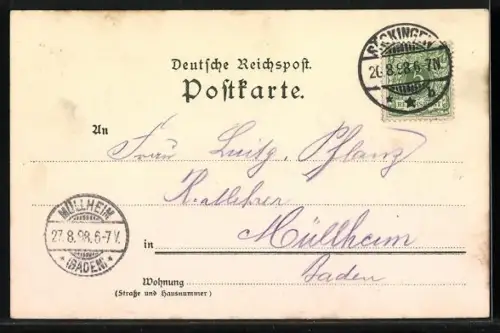 Deutsche Reichspost.
Postkarte.
SÄCKINGEN
26.8.98.6-7N.
* * b
An
Frau Luitg. Pflanz
R. a. lehrer
MÜLLHEIM
27.8.98.6-7V.
* (BADEN) *
in Müllheim
Baden
Wohnung
(Straße und Hausnummer)